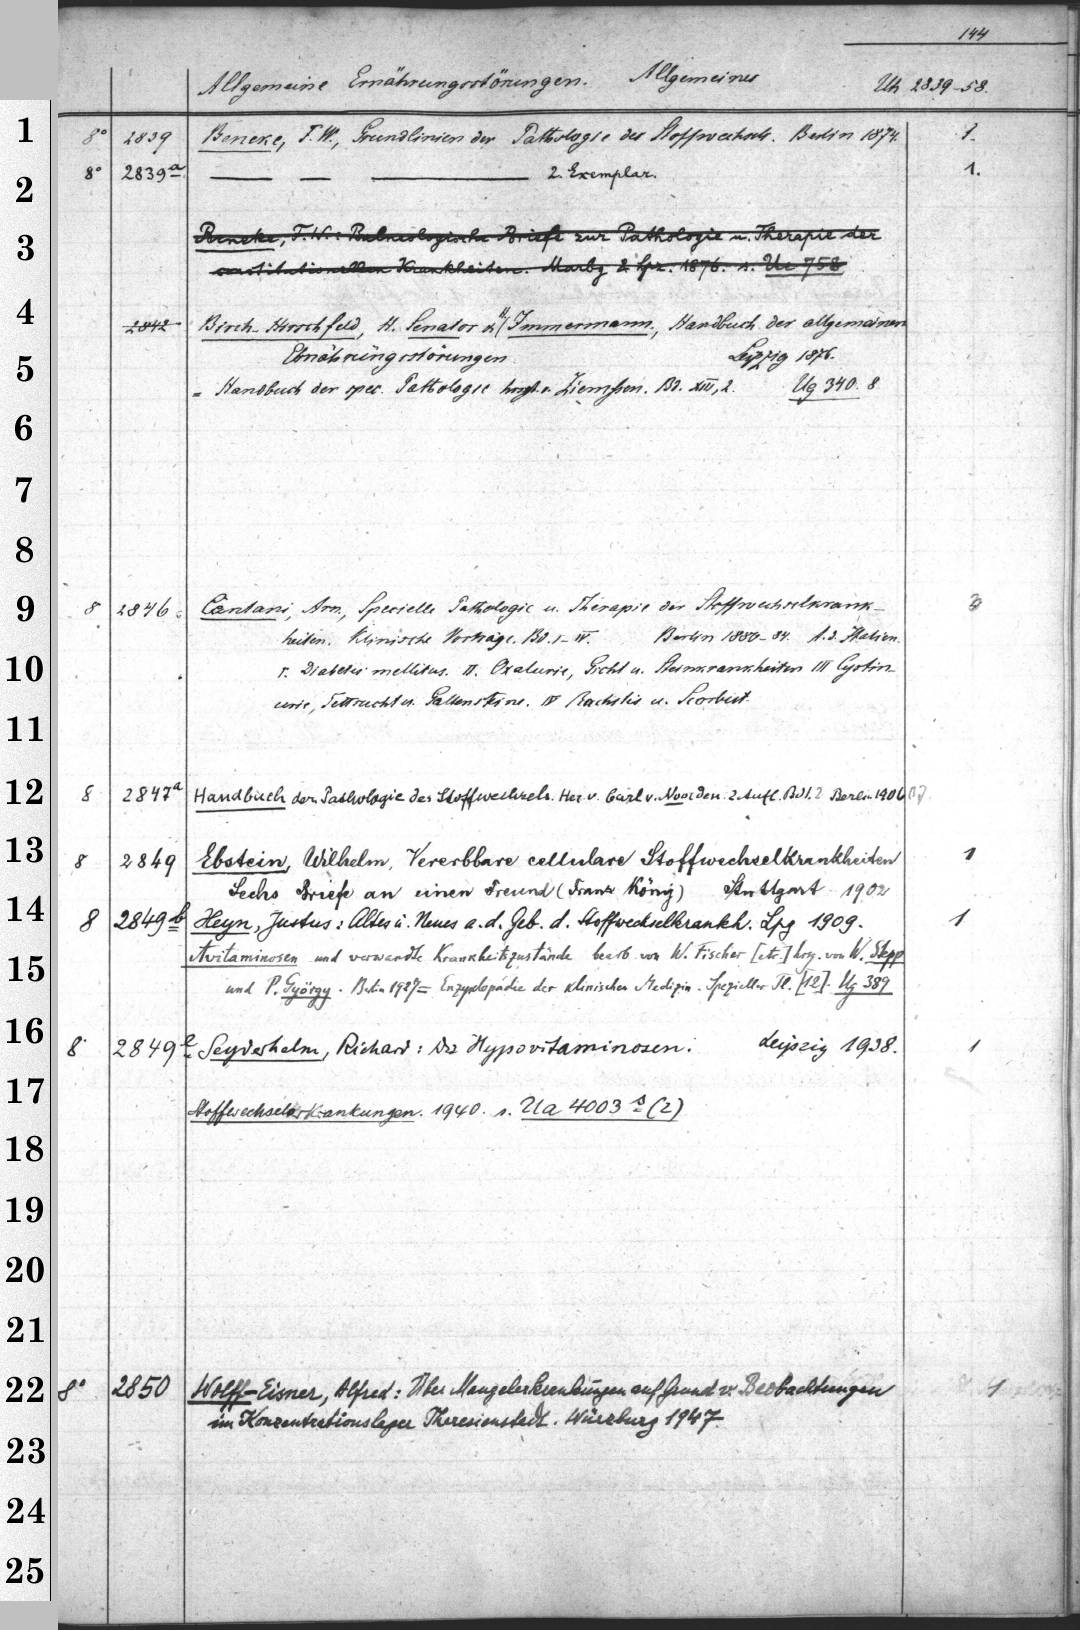 144
Allgemeine Ernährungsstörungen. Allgemeines Uh 2839-58.
1 8° 2839 Beneke, F. W., Grundlinien der Pathologie des Stoffwechsels. Berlin 1874. 1.
2 8° 2839a 2. Exemplar. 1.
3 Beneke, F. W.: Balneologische Briefe zur Pathologie u. Therapie der
constitutionellen Krankheiten. Marbg. 2. Lpz. 1876. s. Uc 758
4 2842 Birch-Hirschfeld, H. Senator u. H. Immermann, Handbuch der allgemeinen
5 Ernährungsstörungen Leipzig 1876.
= Handbuch der spec. Pathologie hrsgt. v. Ziemssen. Bd. XIII, 2. Ug 340. 8
6
7
8
9 8 2846 Cantani, Arn., Specielle Pathologie u. Therapie der Stoffwechselkrank-
heiten. Klinische Vorträge. Bd. I-IV. Berlin 1880-84. A. d. Italien.
10 I. Diabetes mellitus. II. Oxalurie, Gicht u. Steinkrankheiten III Cystin-
urie, Fettsucht u. Gallensteine. IV Rachitis u. Scorbut.
11
12 8 2847a Handbuch der Pathologie des Stoffwechsels. Her. v. Carl v. Noorden. 2. Aufl. Bd 1. 2 Berlin 1906 07
13 8 2849 Ebstein, Wilhelm, Vererbbare cellulare Stoffwechselkrankheiten 1
Sechs Briefe an einen Freund (Franz König) Stuttgart 1902
14 8 2849b Heyn, Justus: Altes u. Neues a. d. Geb. d. Stoffwechselkrankh. Lpg 1909. 1
15 Avitaminosen und verwandte Krankheitszustände bearb. von W. Fischer [etc.] hrsg. von W. Stepp
und P. György. Berlin 1927 = Enzyklopädie der klinischen Medizin. Spezieller Tl. [12]. Ug 389
16 8 2849e Seyderhelm, Richard: Die Hypovitaminosen. Leipzig 1938. 1
17 Stoffwechselerkrankungen. 1940. s. Ua 4003 s (2)
18
19
20
21
22 8° 2850 Wolff-Eisner, Alfred: Über Mangelerkrankungen auf Grund v. Beobachtungen 1
im Konzentrationslager Theresienstadt. Würzburg 1947
23
24
25